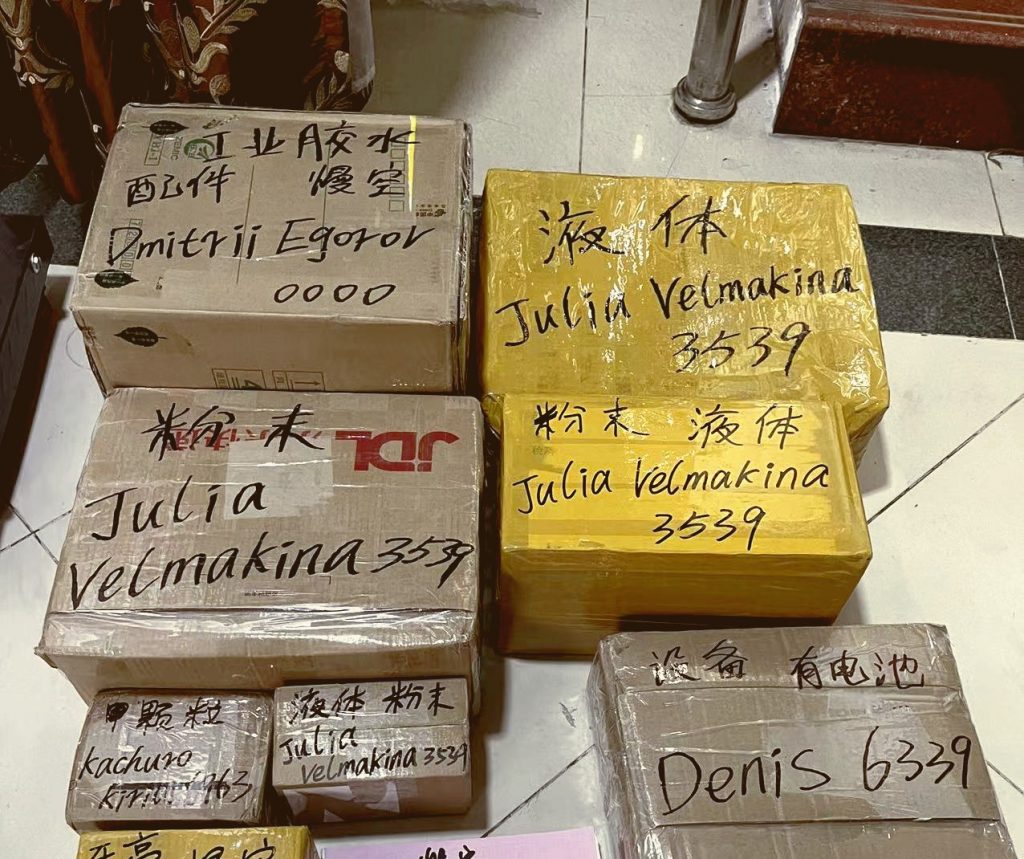 工业胶水
配件 慢空
Dmitrii Egorov
0000
液体
Julia Velmakina
3539
粉末
JDL
Julia
Velmakina 3539
粉末 液体
Julia Velmakina
3539
设备 有电池
Denis 6339
甲颗粒
Kachuro
液体 粉末
Julia
Velmakina 3539
慢空